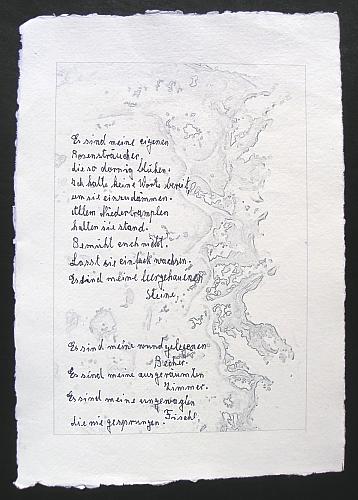 Es sind meine eigenen
Rosensträucher,
die so dornig blühen.
Ich halte keine Worte bereit,
um sie einzudämmen.
Allem Niedertrampeln
halten sie stand.
Bemüht euch nicht.
Lasst sie einfach wachsen.
Es sind meine leergehauenen
Steine,
Es sind meine wundgelegenen
Becher.
Es sind meine ausgeräumten
Zimmer.
Es sind meine ungewagten
die nie gesprungen.